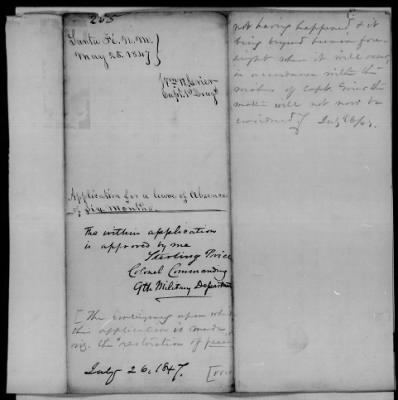 203
Santa Fé, N. M.
May 25, 1847
Wm N. Grier
Capt. 1st Drags
Application for a leave of Absence
of Six Months.
The within application
is approved by me
Sterling Price
Colonel Commanding
9th Military Department
[The contingency upon which
this application is made,
viz. the restoration of peace
July 26, 1847.
not having happened & it
being beyond human fore-
sight when it will occur,
in accordance with the
wishes of Capt. Grier the
matter will not now be
considered]
July 26/47